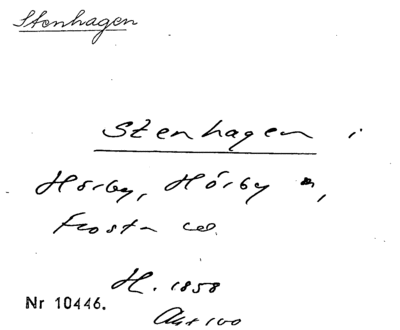 Stenhagen
Stenhagen i
Hörby, Hörby sn,
Frosta hd.
H. 1858
Nr 10446.
Akt 100